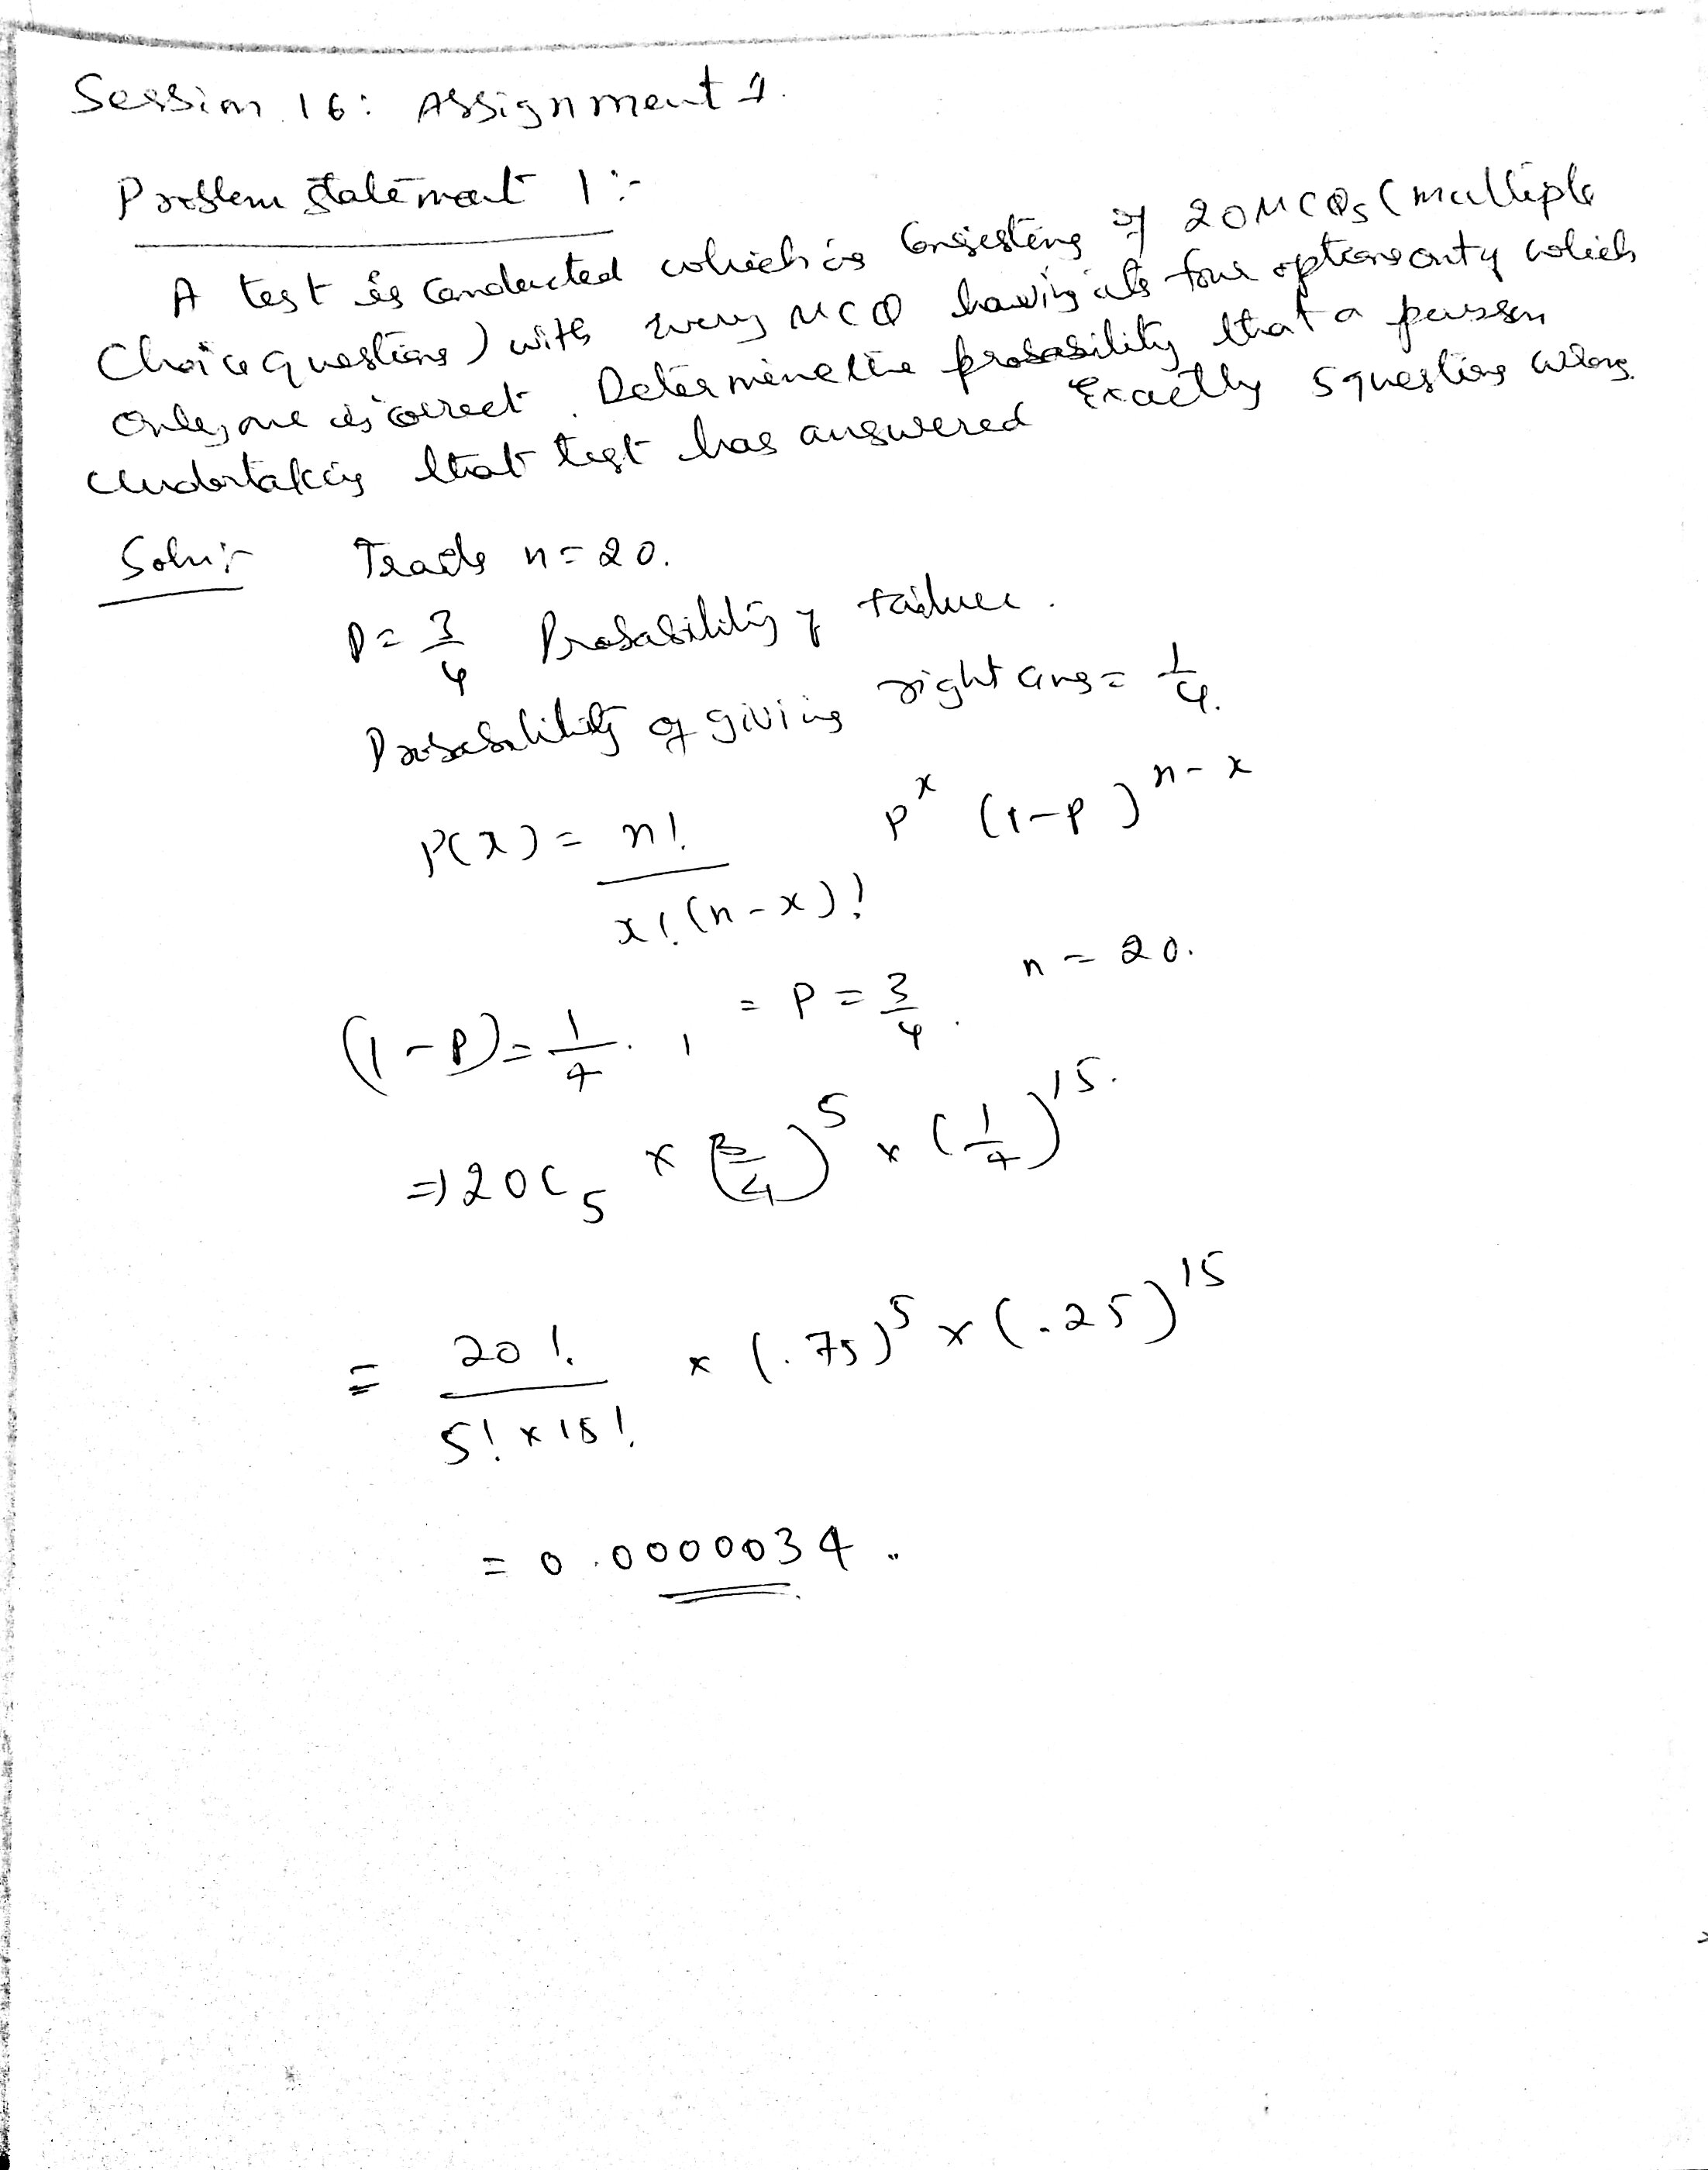 Session 16: Assignment 1.
Problem statement 1:-
A test is conducted which is consisting of 20 MCQs (multiple
Choice questions) with every MCQ having its four options out of which
only one is correct. Determine the probability that a person
undertaking that test has answered Exactly 5 questions wrong.
Soln:- Trails n = 20.
P = 3/4 Probability of failure.
Probability of giving right ans = 1/4.
P(x) = n! / x!(n-x)! p^x (1-p)^n-x
(1-P) = 1/4. , = P = 3/4. n = 20.
=> 20C5 x (3/4)^5 x (1/4)^15.
= 20! / 5! x 15! x (.75)^5 x (.25)^15
= 0.0000034 ..